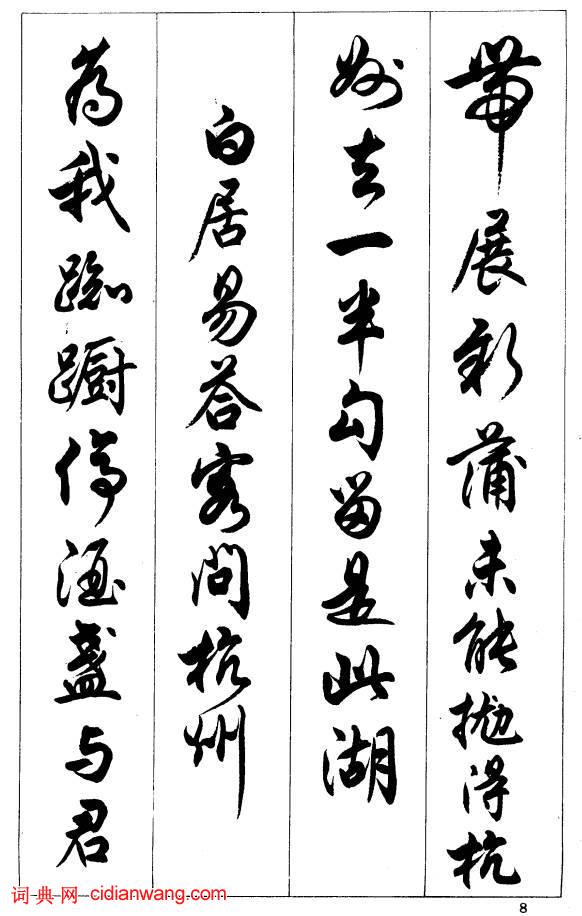 帶展新蒲未能拋得杭
州去一半勾留是此湖
白居易答客問杭州
為我踟躕停酒盞与君
词典网-cidianwang.com
8